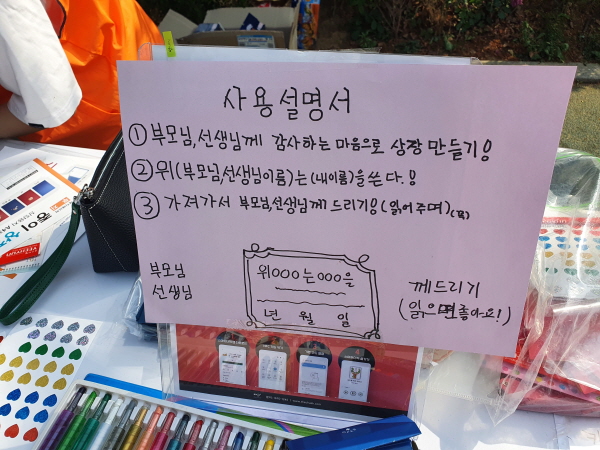 사용설명서
① 부모님, 선생님께 감사하는 마음으로 상장 만들기!
② 위(부모님,선생님이름)는 (내이름)을 쓴다.!
③ 가져가서 부모님,선생님께 드리기!(읽어주며)
부모님
선생님
위OOO는 OOO을
년 월 일
께드리기
(읽으면좋아요!)
종이